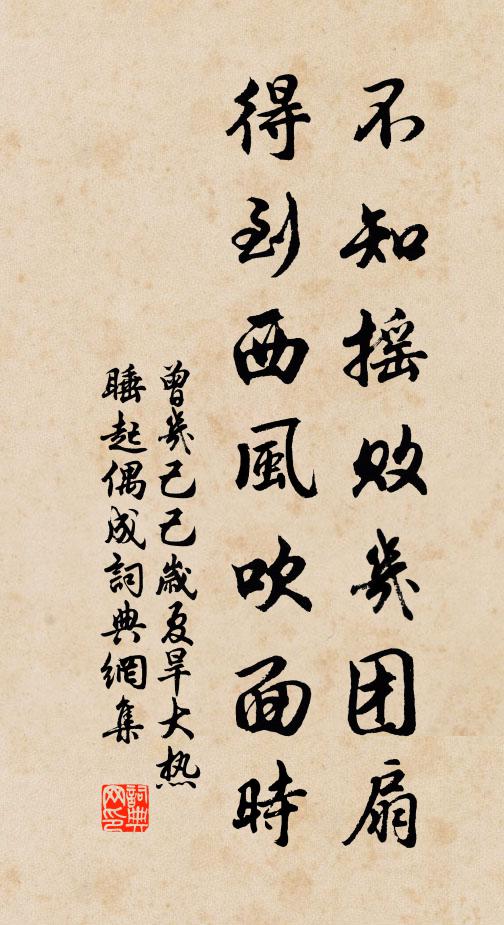 不知摇败幾团扇
得到西風吹面時
曾幾己巳歲夏旱大热
睡起偶成詞典網集
詞典
网印